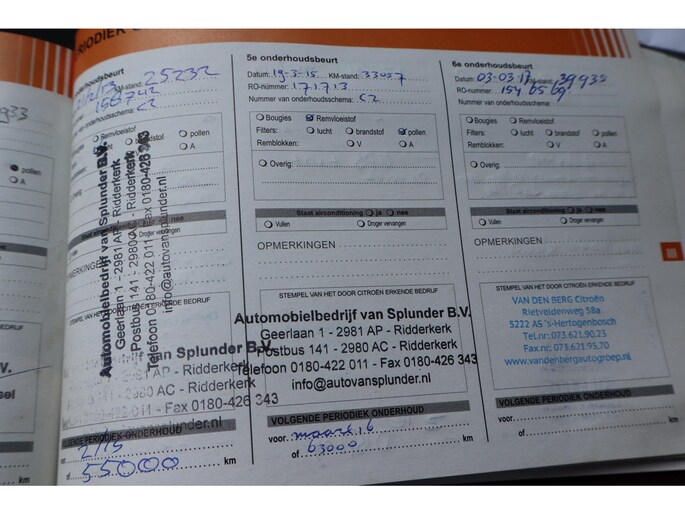 PERIODIEK
onderhoudsbeurt
KM-stand: 25232
156742
Nummer van onderhoudsschema: C2
Remvloeistof
lucht brandstof pollen
V A
Staat airconditioning ja nee
Vullen Droger vervangen
OPMERKINGEN
STEMPEL VAN HET DOOR CITROËN ERKENDE BEDRIJF
Automobielbedrijf van Splunder B.V.
Geerlaan 1 - 2981 AP - Ridderkerk
Postbus 141 - 2980 AC - Ridderkerk
Telefoon 0180-422 011 - Fax 0180-426 343
info@autovansplunder.nl
van Splunder B.V.
AP - Ridderkerk
2980 AC - Ridderkerk
422 011 - Fax 0180-426 343
splunder.nl
VOLGENDE PERIODIEK ONDERHOUD
2/15
of 55000 km
5e onderhoudsbeurt
Datum: 19-3-15 KM-stand: 33057
RO-nummer: 171713
Nummer van onderhoudsschema: C2
Bougies Remvloeistof
Filters: lucht brandstof pollen
Remblokken: V A
Overig:
Staat airconditioning ja nee
Vullen Droger vervangen
OPMERKINGEN
STEMPEL VAN HET DOOR CITROËN ERKENDE BEDRIJF
Automobielbedrijf van Splunder B.V.
Geerlaan 1 - 2981 AP - Ridderkerk
Postbus 141 - 2980 AC - Ridderkerk
Telefoon 0180-422 011 - Fax 0180-426 343
info@autovansplunder.nl
VOLGENDE PERIODIEK ONDERHOUD
voor maart 16
of 63000 km
6e onderhoudsbeurt
Datum: 03-03-17 KM-stand: 39935
RO-nummer: 154 65 69
Nummer van onderhoudsschema:
Bougies Remvloeistof
Filters: lucht brandstof pollen
Remblokken: V A
Overig:
Staat airconditioning ja nee
Vullen Droger vervangen
OPMERKINGEN
STEMPEL VAN HET DOOR CITROËN ERKENDE BEDRIJF
VAN DEN BERG Citroën
Rietveldenweg 58a
5222 AS 's-Hertogenbosch
Tel.nr: 073.621.90.23
Fax.nr: 073.621.95.70
www.vandenbergautogroep.nl
VOLGENDE PERIODIEK ONDERHOUD
voor
of km
pollen
A